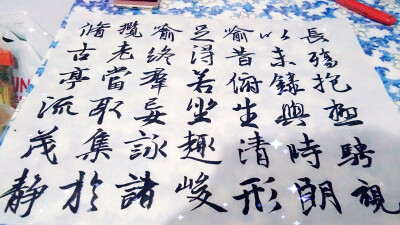 長殤抱極騁視
以未錄興時朗
喻昔俯生清形
足得若坐趣峻
喻終羣妄詠諸
攬老當取集於
脩古亭流茂静